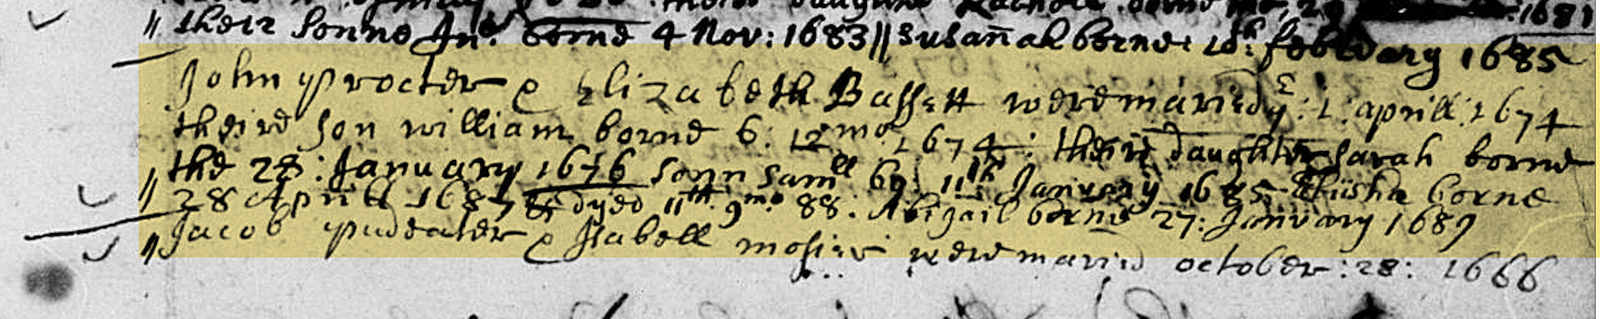 daughter Rachell borne 29 1681
their sonne Jno. borne 4 Nov: 1683 || Susan̄ah borne: 10th. february 1685
John Procter & Elizabeth Bassett were maried ye: 1: aprill: 1674
theire son william borne 6: 12mo 1674: their daughter Sarah borne
the 28: January 1676 sonn Samll bo: 11th January 1685 Elisha borne
28 Aprill 1687 & dyed 11th. 9mo. 88: Abigail borne 27: January 1689
Jacob pudeater & Isabell mosier were maried october: 28: 1666